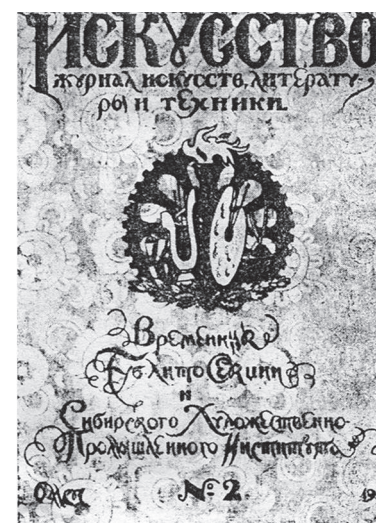 ИСКУССТВО
журнал искусств, литерату-
ры и техники.
Временник
Губ Лито Секции
и
Сибирского Художественно-
Промышленного Института
Омск № 2. 19